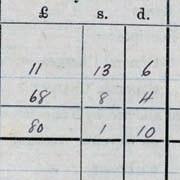 £ s. d.
11 13 6
68 8 4
80 1 10